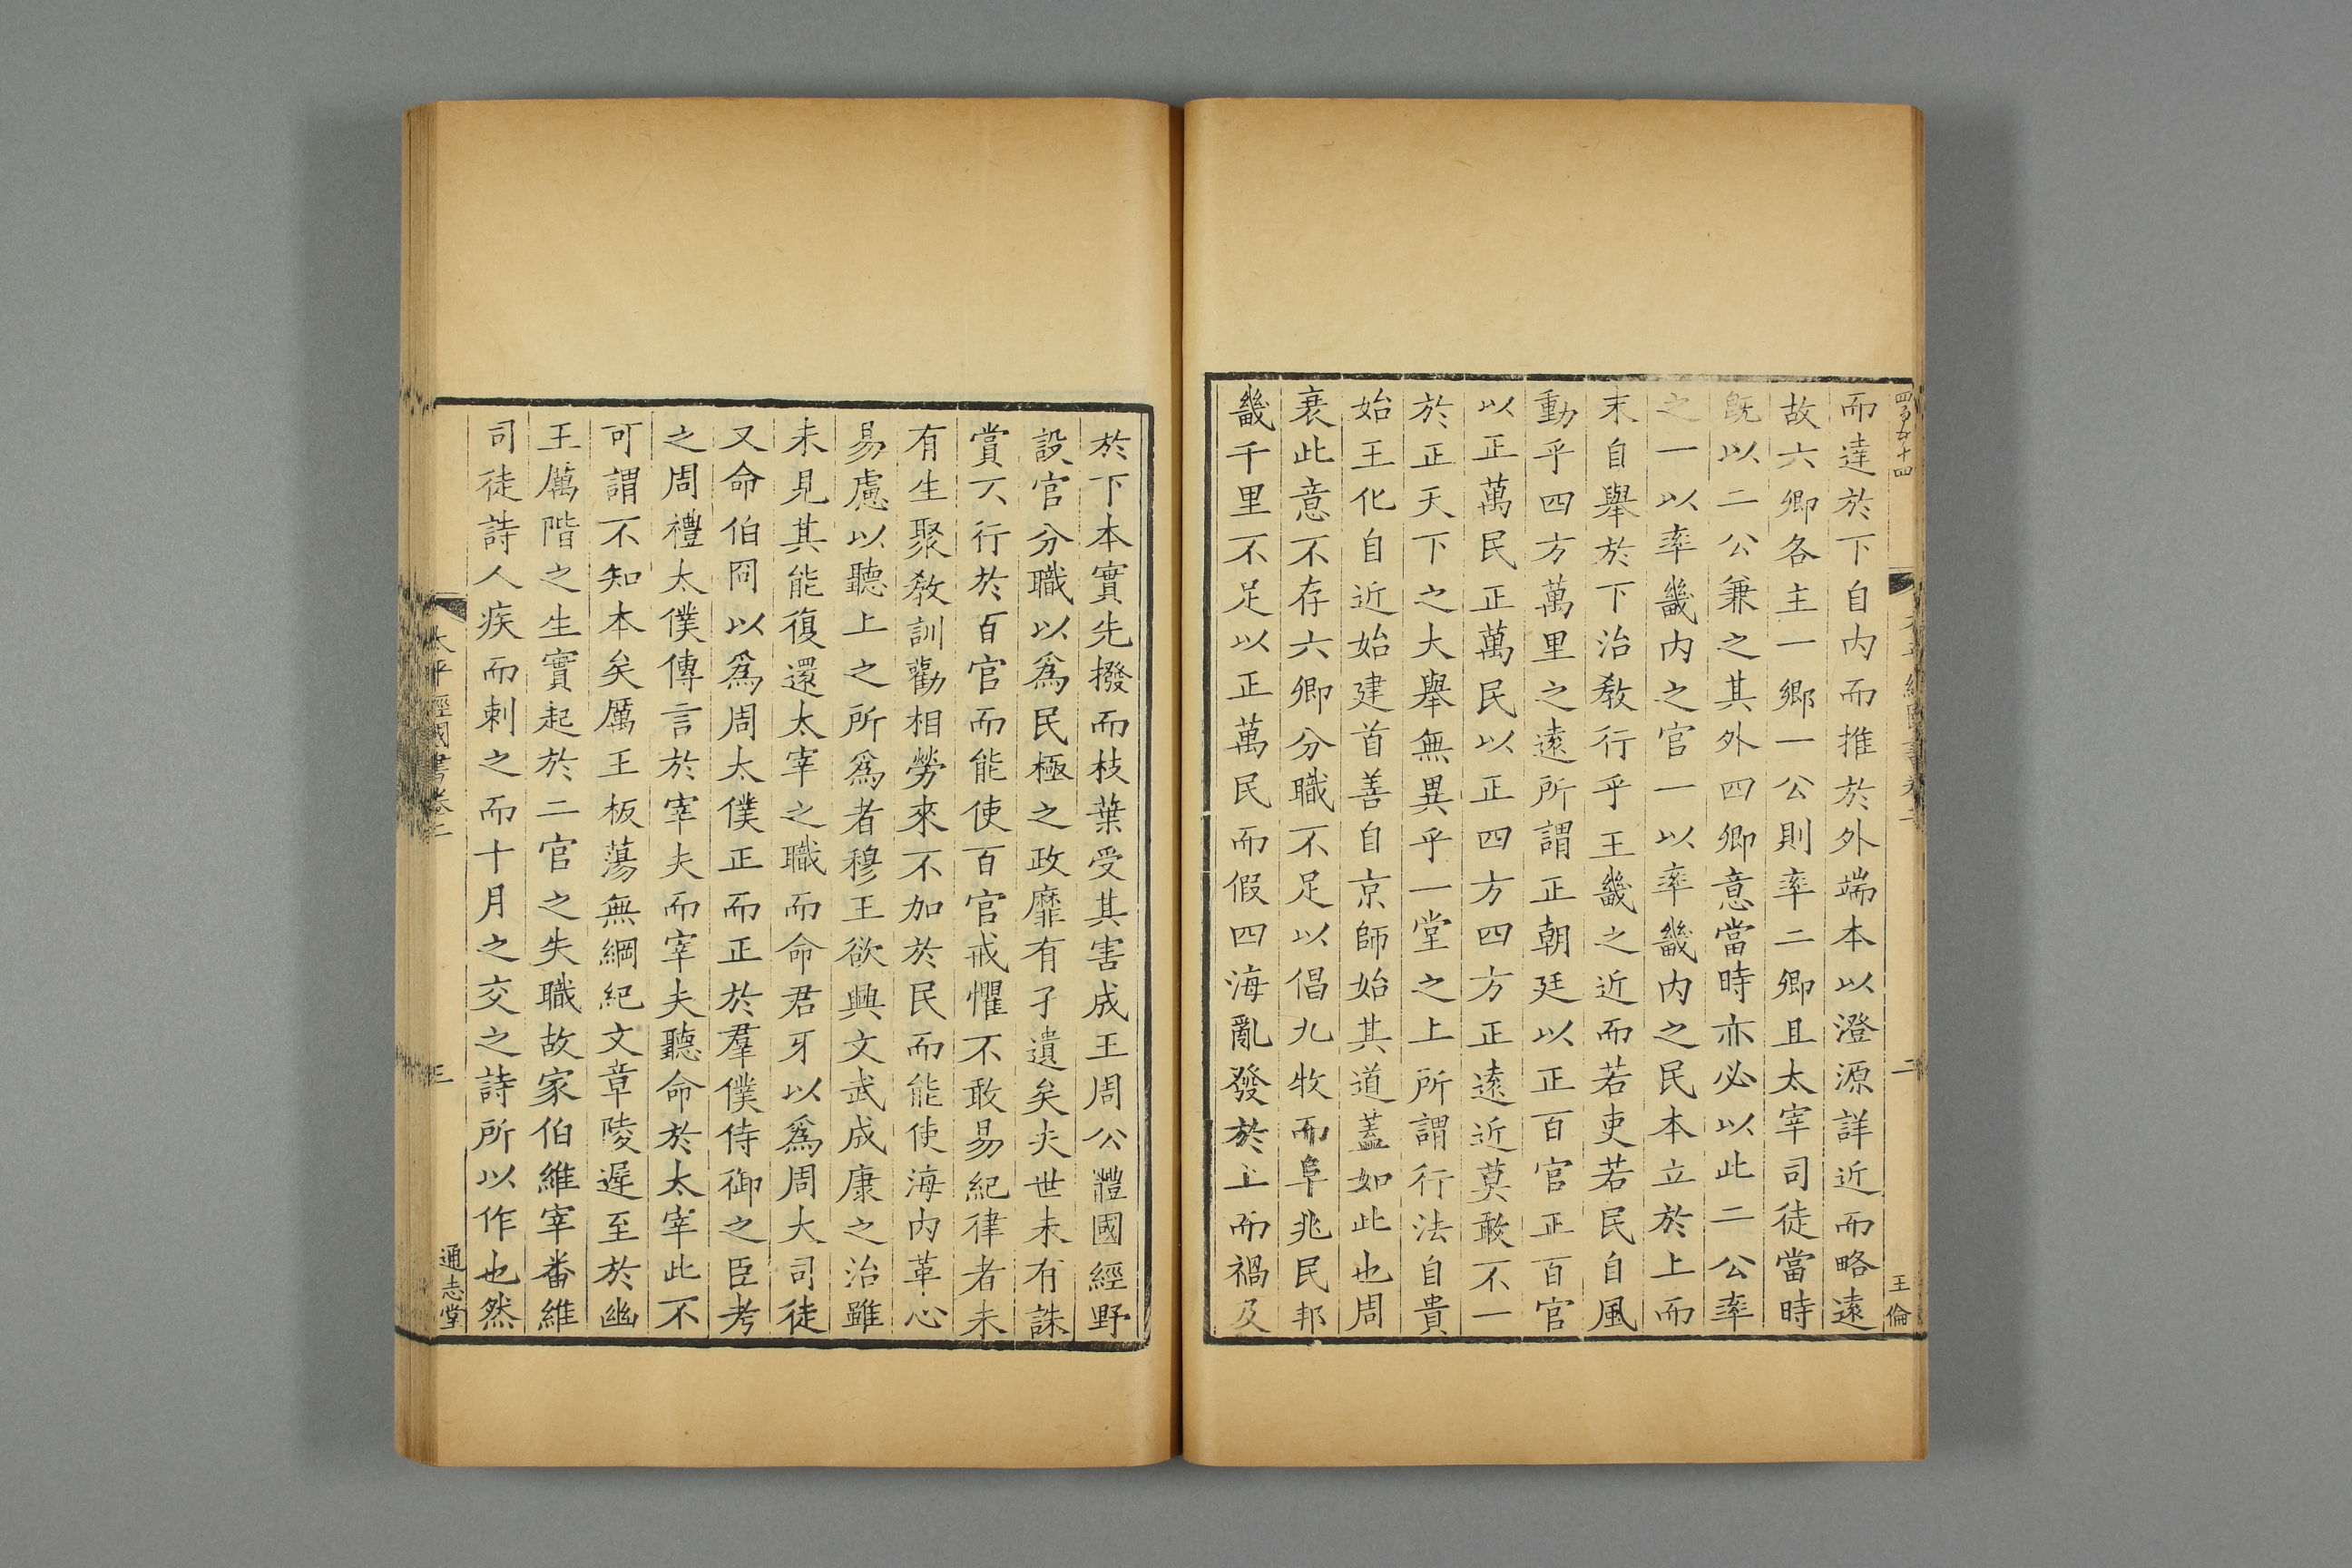 而達於下自内而推於外端本以澄源詳近而略遠
故六卿各主一鄉一公則率二卿且太宰司徒當時
旣以二公兼之其外四卿意當時亦必以此二公率
之一以率畿内之官一以率畿内之民本立於上而
末自舉於下治教行乎王畿之近而若吏若民自風
動乎四方萬里之遠所謂正朝廷以正百官正百官
以正萬民正萬民以正四方四方正遠近莫敢不一
於正天下之大舉無異乎一堂之上所謂行法自貴
始王化自近始建首善自京師始其道蓋如此也周
衰此意不存六卿分職不足以倡九牧而阜兆民邦
畿千里不足以正萬民而假四海亂發於上而禍及
二
王倫
於下本實先撥而枝葉受其害成王周公體國經野
設官分職以爲民極之政靡有孑遺矣夫世未有誅
賞不行於百官而能使百官戒懼不敢易紀律者未
有生聚教訓勸相勞來不加於民而能使海内革心
易慮以聽上之所爲者穆王欲興文武成康之治雖
未見其能復還太宰之職而命君牙以爲周大司徒
又命伯冏以爲周太僕正而正於羣僕侍御之臣考
之周禮太僕傳言於宰夫而宰夫聽命於太宰此不
可謂不知本矣厲王板蕩無綱紀文章陵遲至於幽
王厲階之生實起於二官之失職故家伯維宰番維
司徒詩人疾而刺之而十月之交之詩所以作也然
太平經國書卷二
三
通志堂